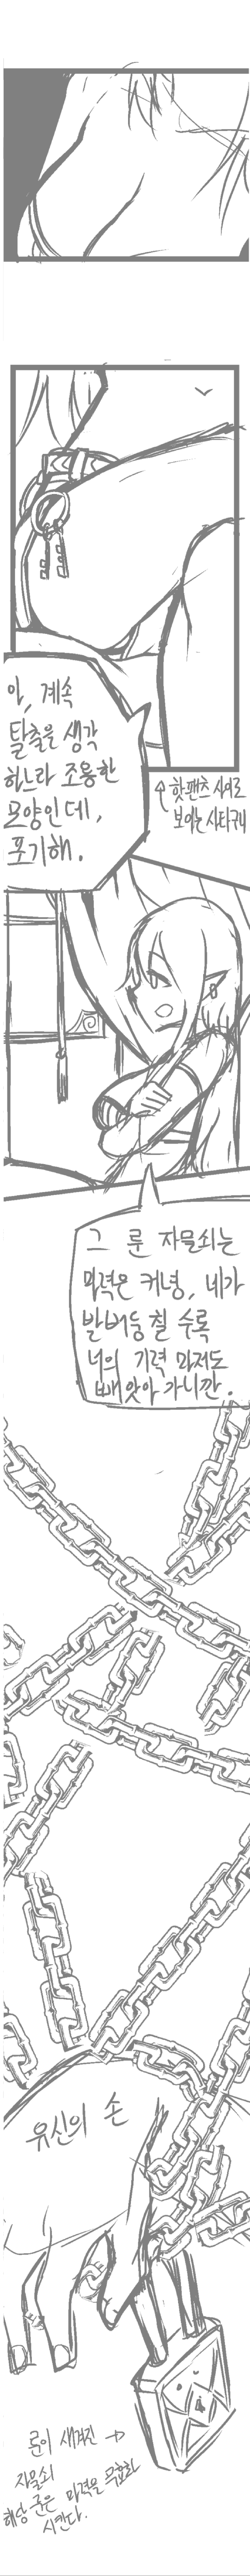 아, 계속
탈출을 생각
하느라 조용한
모양인데,
포기해.
핫팬츠 사이로
보이는 시타구니
그 룬 자물쇠는
마력은 커녕, 네가
발버둥 칠 수록
너의 기력 마저도
빼앗아 가니깐.
유신의 손
룬이 새겨진 →
자물쇠
해당 룬은 마력을 무효화
시킨다.